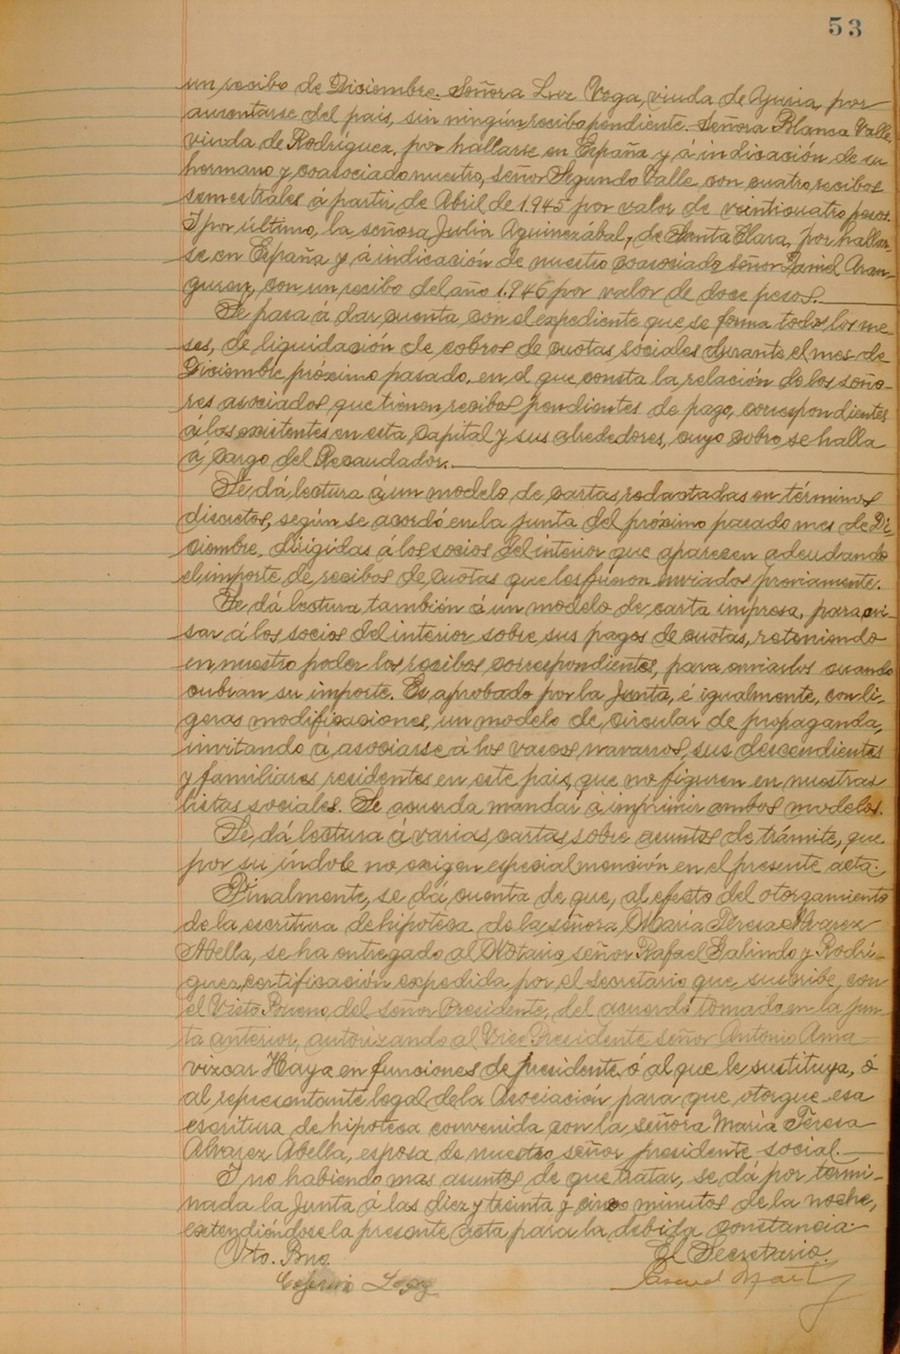 53
un recibo de Diciembre. Señora Luz Vega, viuda de Yuria, por
ausentarse del país, sin ningún recibo pendiente. Señora Blanca Valle,
viuda de Rodríguez, por hallarse en España y á indicación de su
hermano y coasociado nuestro, señor Segundo Valle con cuatro recibos
semestrales á partir de Abril de 1.945 por valor de veinticuatro pesos.
Y por último, la señora Julia Aguinezabal, de Santa Clara, por hallar-
se en España y á indicación de nuestro coasociado señor Daniel Aran-
guren, con un recibo del año 1.946 por valor de doce pesos.
Se pasa á dar cuenta con el expediente que se forma todos los me-
ses, de liquidación de cobros de cuotas sociales durante el mes de
Diciembre próximo pasado, en el que consta la relación de los seño-
res asociados que tienen recibos pendientes de pago, correspondientes
á los existentes en esta capital y sus alrededores, cuyo cobro se halla
á cargo del Recaudador.
Se dá lectura á un modelo de cartas redactadas en términos
discretos, según se acordó en la junta del próximo pasado mes de Di-
ciembre, dirigidas á los socios del interior que aparecen adeudando
el importe de recibos de cuotas que les fueron enviados previamente.
Se dá lectura también á un modelo de carta impresa, para avi-
sar á los socios del interior sobre sus pagos de cuotas, reteniendo
en nuestro poder los recibos correspondientes, para enviarlos cuando
cubran su importe. Es aprobado por la Junta, é igualmente, con li-
geras modificaciones, un modelo de circular de propaganda,
invitando á asociarse á los vascos navarros, sus descendientes
y familiares residentes en este pais, que no figuren en nuestras
listas sociales. Se acuerda mandar á imprimir ambos modelos.
Se dá lectura á varias cartas sobre asuntos de trámite, que
por su índole no exigen especial mención en el presente acta.
Finalmente, se dá cuenta de que, al efecto del otorgamiento
de la escritura de hipoteca de la señora María Teresa Alvarez
Abella, se ha entregado al Notario, señor Rafael Galindo y Rodrí-
guez, certificación expedida por el Secretario que suscribe, con
el Visto Bueno del señor Presidente, del acuerdo tomado en la jun-
ta anterior, autorizando al Vice Presidente señor Antonio Ama-
vizcar Haya en funciones de presidente, ó al que le sustituya, ó
al representante legal de la Asociación para que otorgue esa
escritura de hipoteca convenida con la señora María Teresa
Alvarez Abella, esposa de nuestro señor presidente social.
Y no habiendo mas asuntos de que tratar, se dá por termi-
nada la Junta á las diez y treinta y cinco minutos de la noche,
extendiéndose la presente acta para la debida constancia.
Vto. Bno. El Secretario.